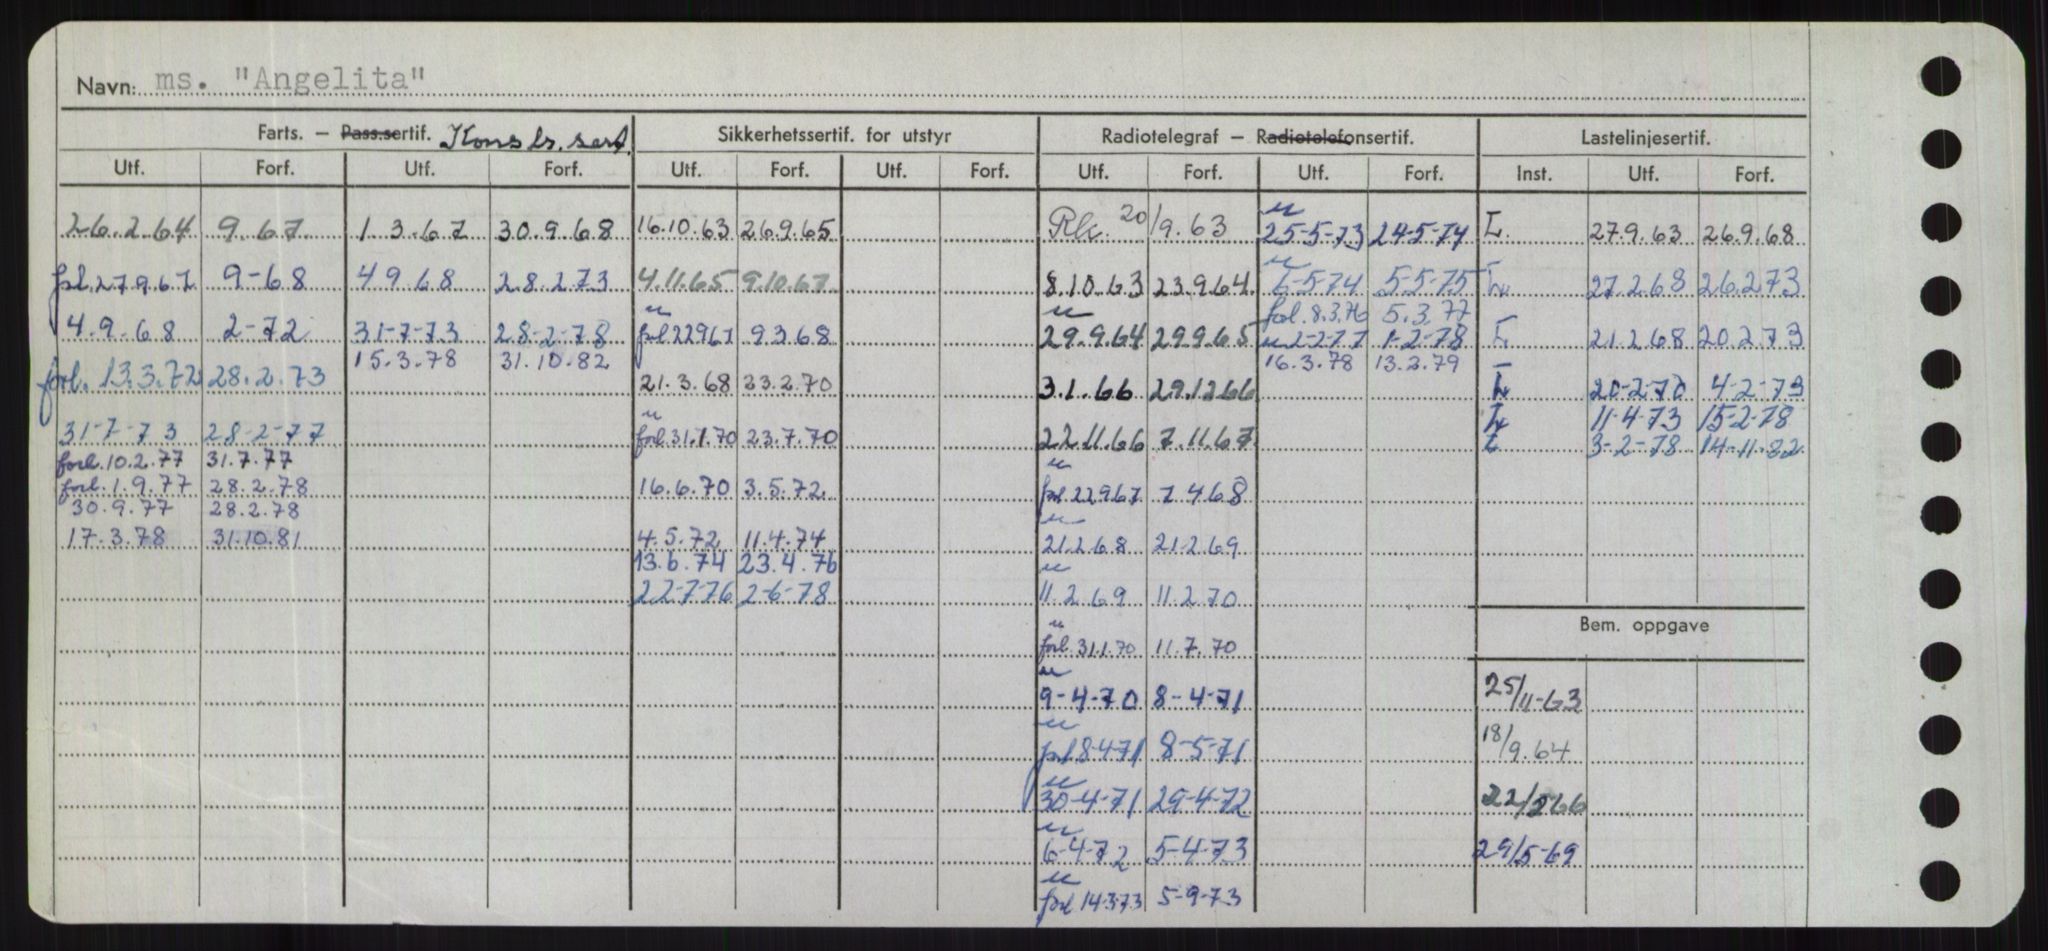 Navn: ms. "Angelita"
Farts. — Pass.sertif. Konstr. sert. Sikkerhetssertif. for utstyr Radiotelegraf — Radiotelefonsertif. Lastelinjesertif.
Utf. Forf. Utf. Forf. Utf. Forf. Utf. Forf. Utf. Forf. Utf. Forf. Inst. Utf. Forf.
26.2.64 9.67
forl. 27.9.67 9-68
4.9.68 2-72
forl. 13.3.72 28.2.73
31-7-73 28-2-77
forl. 10.2.77 31.7.77
forl. 1.9.77 28.2.78
30.9.77 28.2.78
17.3.78 31.10.81
1 3.67 30.9.68
4 9.68 28.2.73
31-7-73 28-2-78
15.3.78 31.10.82
16.10.63 26.9.65
4.11.65 9.10.67
forl 22967 9.3.68
21.3.68 23.2.70
forl. 31.1.70 23.7.70
16.6.70 3.5.72
4.5.72 11.4.74
13.6.74 23.4.76
22-7-76 2-6-78
20/9.63
8.10.63 23.9.64
29.9.64 29.9.65
3.1.66 29.12.66
22.11.66 7.11.67
forl 22967 7.4.68
21.2.68 21.2.69
11.2.69 11.2.70
forl. 31.1.70 11.7.70
9-4-70 8-4-71
forl 8-4-71 8-5-71
30-4-71 29-4-72
6-4-72 5-4-73
forl 14.3.73 5-9-73
25-5-73 24-5-74
6-5-74 5-5-75
forl. 8.3.76 5.3.77
2-2-77 1-2-78
16.3.78 13.2.79
L 27.9.63 26.9.68
L 27.2.68 26.2.73
L 21.2.68 20.2.73
L 20-2-70 4-2-73
L 11-4-73 15-2-78
L 3-2-78 14-11-82
Bem. oppgave
25/11-63
18/9.64
22/266
29/5-69